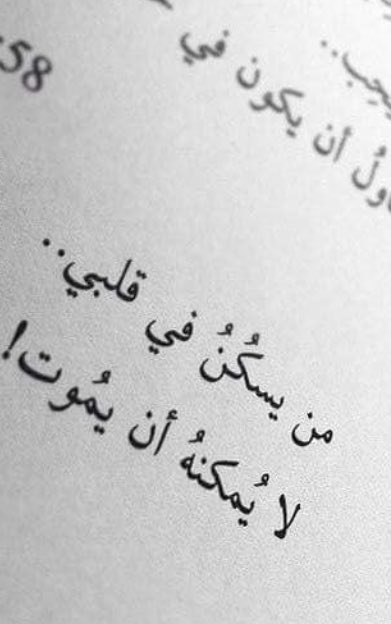 يجب..
أن يكون في
58
من يسكُنُ في قلبي..
لا يُمكنهُ أن يمُوت!